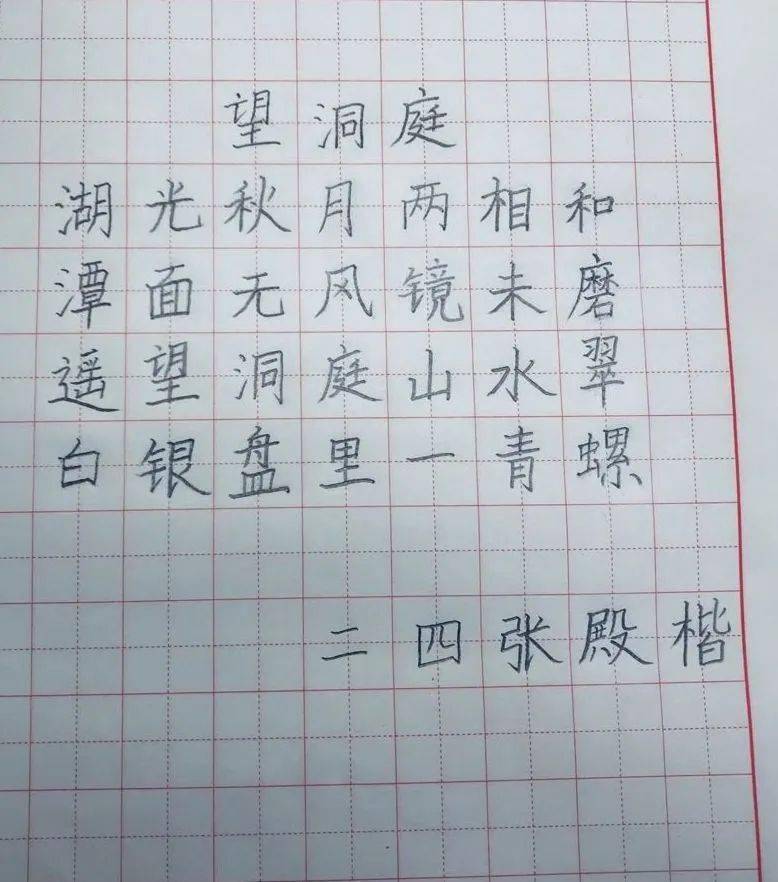 望洞庭
湖光秋月两相和
潭面无风镜未磨
遥望洞庭山水翠
白银盘里一青螺
二四张殿楷